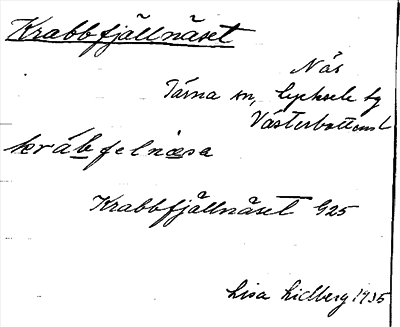 Krabbfjällnäset
Näs
Tärna sn, Lycksele tg
Västerbottensl
krábfelnæsa
Krabbfjällnäset G25
Lisa Lidberg 1935